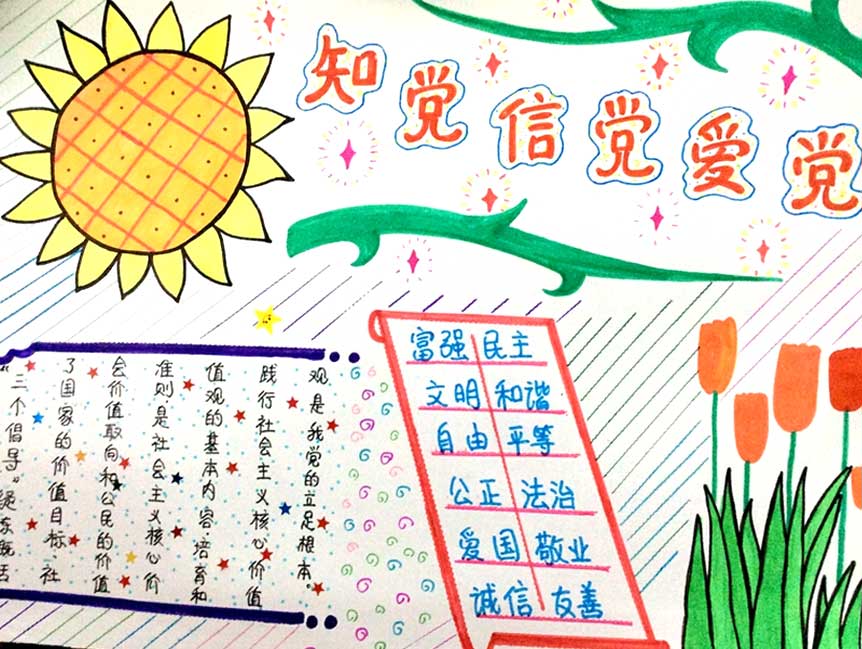 知党信党爱党
富强 民主
文明 和谐
自由 平等
公正 法治
爱国 敬业
诚信 友善
“三个倡导”
了国家的价值目标 社
会价值取向和公民的价值
准则是社会主义核心价
值观的基本内容培育和
践行社会主义核心价值
观是我党的立足根本.